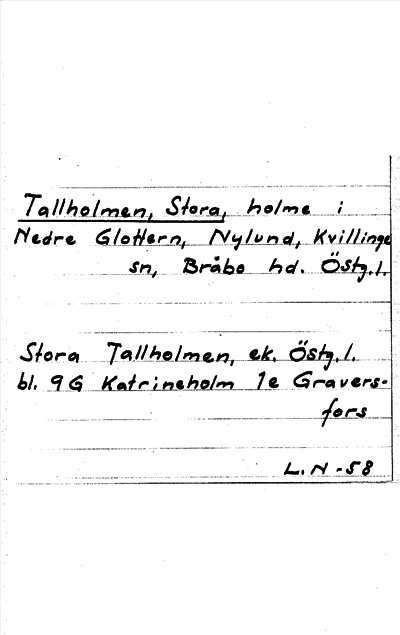 Tallholmen, Stora, holme i
Nedre Glottern, Nylund, Kvillinge
sn, Bråbo hd. Östg.l.
Stora Tallholmen, ek. Östg.l.
bl. 9G Katrineholm 1e Gravers-
fors
L.N -58